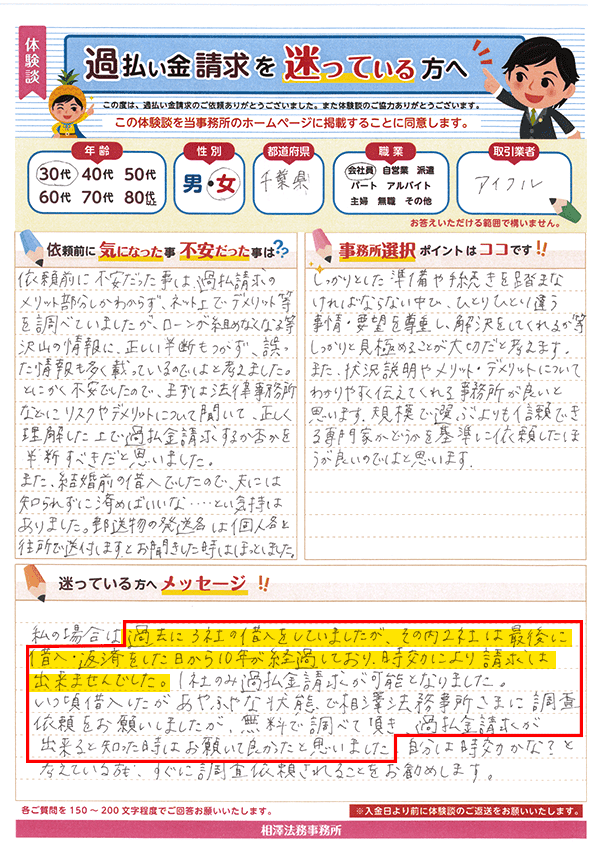 体験談
過払い金請求を迷っている方へ
この度は、過払い金請求のご依頼ありがとうございました。また体験談のご協力ありがとうございます。
この体験談を当事務所のホームページに掲載することに同意します。
年齢
30代 40代 50代
60代 70代 80代以上
性別
男・女
都道府県
千葉県
職業
会社員 自営業 派遣
パート アルバイト
主婦 無職 その他
取引業者
アイフル
お答えいただける範囲で構いません。
依頼前に気になった事 不安だった事は??
依頼前に不安だった事は、過払請求の
メリット部分しかわからず、ネット上でデメリット等
を調べていましたが、ローンが組めなくなる等
沢山の情報に、正しい判断もつかず、誤っ
た情報も多く載っているのではと考えました。
とにかく不安でしたので、まずは法律事務所
などにリスクやデメリットについて聞いて、正しく
理解した上で過払金請求するか否かを
判断すべきだと思いました。
また、結婚前の借入でしたので、夫には
知られずに済めばいいな……とい気持は
ありました。郵送物の発送名は個人名と
住所で送付しますとお聞きした時はほっとしました。
事務所選択ポイントはココです!!
しっかりとした準備や手続きを踏まな
ければならない中ひ、ひとりひとり違う
事情・要望を尊重し、解決をしてくれるか等
しっかりと見極めることが大切だと考えます。
また、状況説明やメリット・デメリットについて
わかりやすく伝えてくれる事務所が良いと
思います。規模で選ぶよりも信頼でき
る専門家かどうかを基準に依頼したほ
うが良いのではと思います。
迷っている方へメッセージ!!
私の場合は過去に3社の借入をしていましたが、その内2社は最後に
借入・返済をした日から10年が経過しており、時効により請求は
出来ませんでした。1社のみ過払金請求が可能となりました。
いつ頃借入したがあやふやな状態で相澤法務事所さまに調査
依頼をお願いしましたが、無料で調べて頂き、過払金請求が
出来ると知った時はお願いて良かったと思いました。自分は時効かな?と
考えている方も、すぐに調査依頼されることをお勧めします。
各ご質問を150～200文字程度でご回答お願いいたします。
※入金日より前に体験談のご返送をお願いいたします。
相澤法務事務所